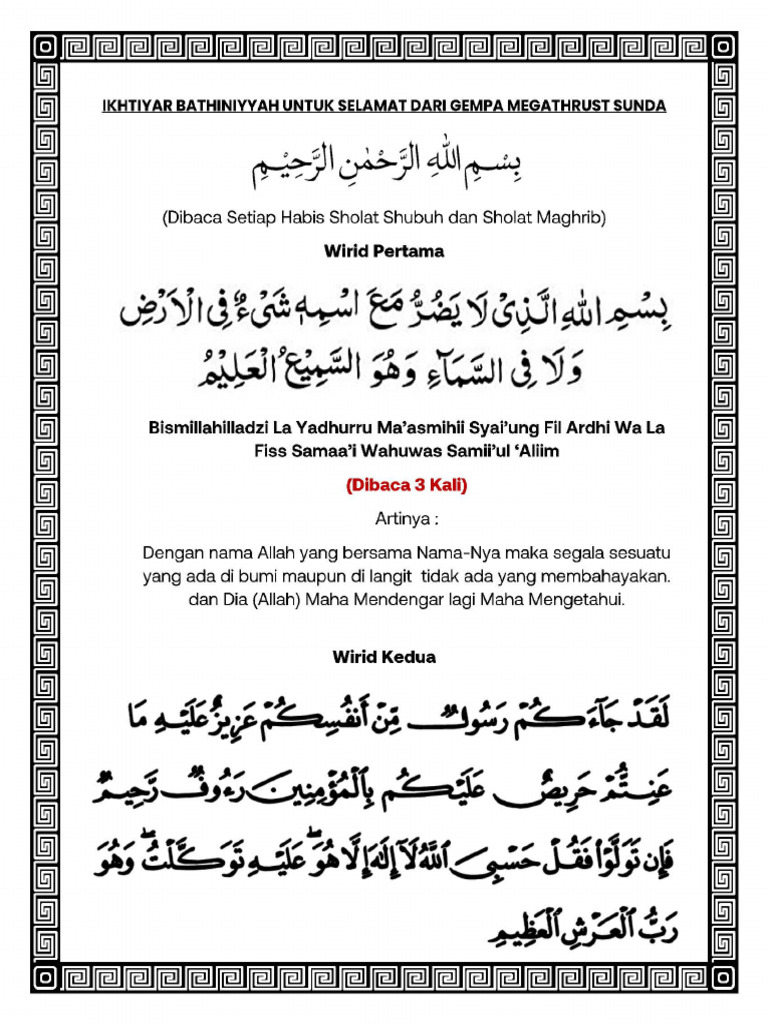 IKHTIYAR BATHINIYYAH UNTUK SELAMAT DARI GEMPA MEGATHRUST SUNDA
بِسْمِ اللهِ الرَّحْمٰنِ الرَّحِيْمِ
(Dibaca Setiap Habis Sholat Shubuh dan Sholat Maghrib)
Wirid Pertama
بِسْمِ اللهِ الَّذِيْ لَا يَضُرُّ مَعَ اسْمِهٖ شَيْءٌ فِى الْاَرْضِ
وَلَا فِى السَّمَآءِ وَهُوَ السَّمِيْعُ الْعَلِيْمُ
Bismillahilladzi La Yadhurru Ma’asmihii Syai’ung Fil Ardhi Wa La
Fiss Samaa’i Wahuwas Samii’ul ‘Aliim
(Dibaca 3 Kali)
Artinya :
Dengan nama Allah yang bersama Nama-Nya maka segala sesuatu
yang ada di bumi maupun di langit tidak ada yang membahayakan.
dan Dia (Allah) Maha Mendengar lagi Maha Mengetahui.
Wirid Kedua
لَقَدْ جَآءَكُمْ رَسُولٌ مِّنْ أَنفُسِكُمْ عَزِيزٌ عَلَيْهِ مَا
عَنِتُّمْ حَرِيصٌ عَلَيْكُم بِٱلْمُؤْمِنِينَ رَءُوفٌ رَّحِيمٌ
فَإِن تَوَلَّوْا۟ فَقُلْ حَسْبِىَ ٱللَّهُ لَآ إِلَٰهَ إِلَّا هُوَ ۖ عَلَيْهِ تَوَكَّلْتُ ۖ وَهُوَ
رَبُّ ٱلْعَرْشِ ٱلْعَظِيمِ